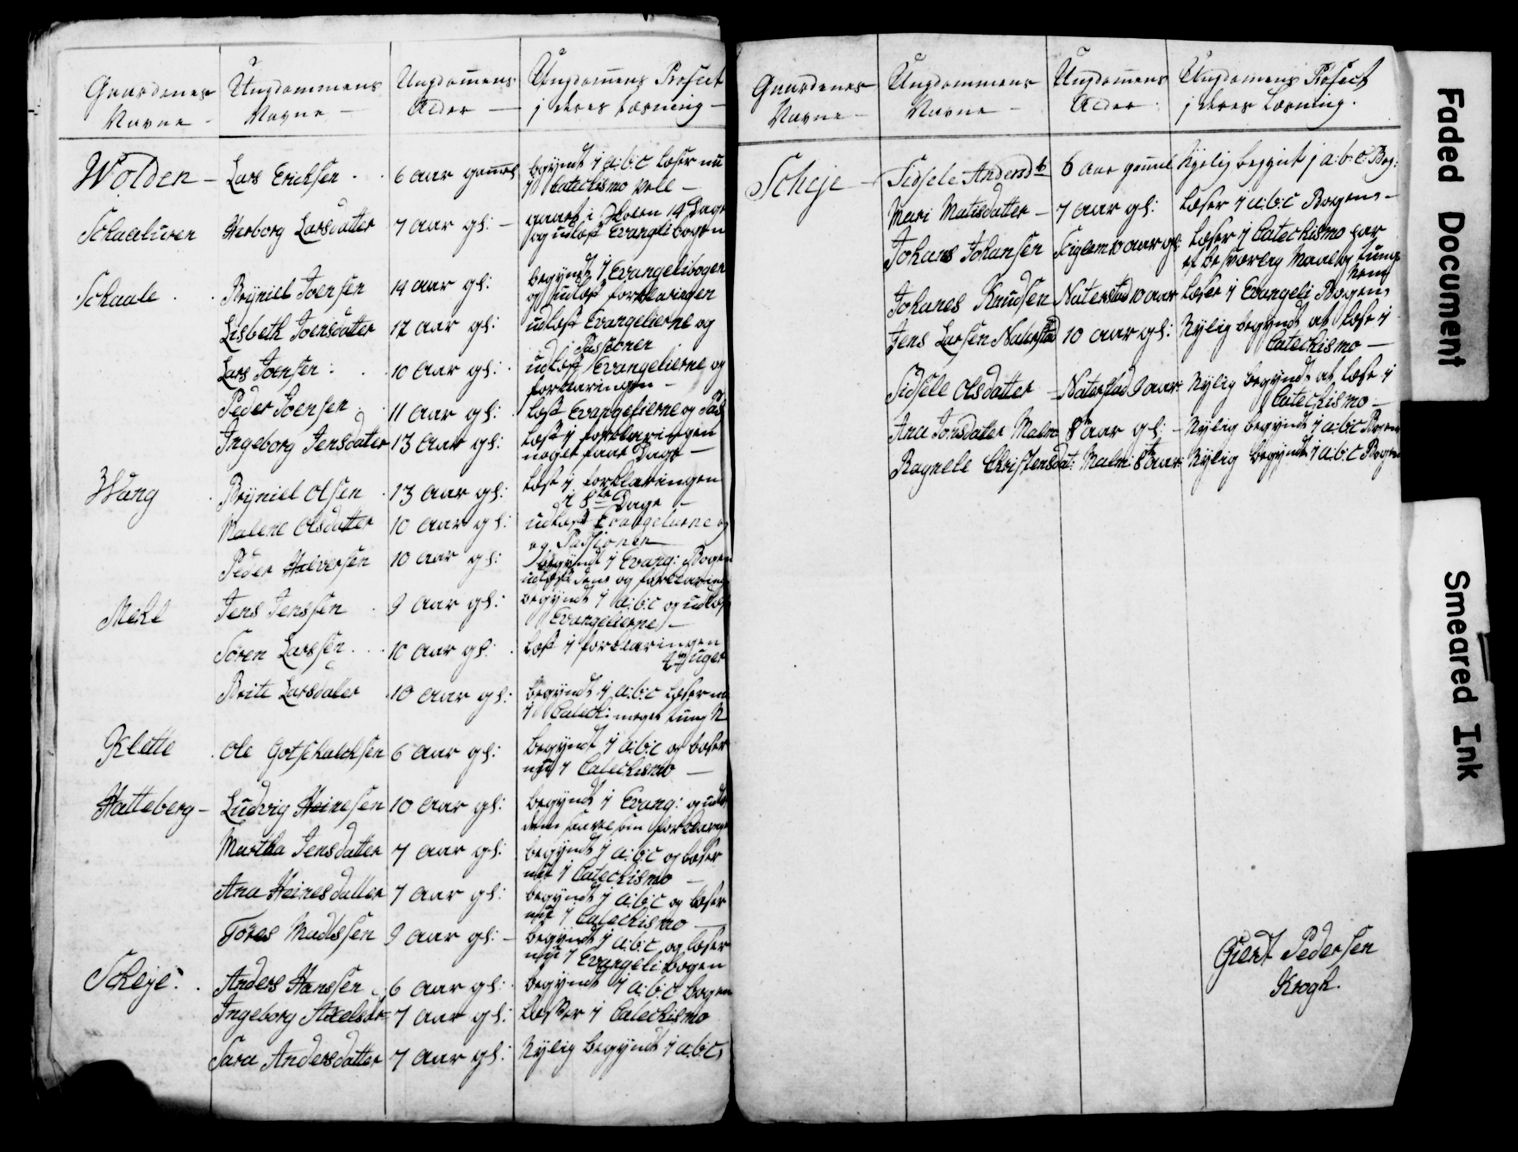 Gaardenes Navne - Ungdommens Navne - Ungdomens Alder - Ungdomens Profect j deres Læsning -
Wolden - Lars Erichsen - 6 aar gamel begyndt j a:b:c læser nu
j Catechismo vele -
Schaaluren Herborg Larsdatter 7 aar gl: - gaaet i Skolen 14 Dage
og udlæst Evangelibogen
Schaale Bryniel Joensen 14 aar gl: begyndt j Evangelibogen
og udlæst forklaringen
Lisbeth Joensdatter 12 aar gl: udlæst Evangelierne og
Passionen
Lars Joensen: 10 aar gl: udlæst Evangelierne og
forklaringen -
Peder Joensen 11 aar gl: læst Evangelierne og
Ingeborg Jensdatter 13 aar gl: læst j forklaringen
noget faae Dage -
Wang Bryniel Olsen 13 aar gl: læst j forklaringen
i 8te Dage -
Malene Olsdatter 10 aar gl: udlæst Evangelierne
og Passionen
Peder Halversen 10 aar gl: begyndt j Evang: Bogen
udlæst dend og forklaring
Mehl Jens Jenssen 9 aar gl: begyndt j a:b:c og udlæst
Evangelierne -
Sören Larssen 10 aar gl: læst j forklaringen
uger
Brite Larsdater 10 aar gl: begyndt j a:b:c læser nu
j Catech: meget tung
Klette Ole Gotschalchsen 6 aar gl: begyndt j a:b:c og læser
nu j Catechismo -
Hatteberg - Ludvig Heinesen 10 aar gl: begyndt j Evang: og
dem saavelsom forklaring
Martha Jensdatter 7 aar gl: begyndt j a:b:c og læser
nu j Catechismo -
Ana Heinesdatter 7 aar gl: begyndt j a:b:c og læser
nu j Catechismo -
Töres Madssen 9 aar gl: - begyndt j a:b:c, og læser
nu j Evangelibogen
Scheje: Anders Hanssen 6 aar gl: begyndt j a:b:c bogen
Ingeborg 7 aar gl: læser j Catechismo
Sara Andersdatter 7 aar gl: Nylig begyndt j a:b:c,
Gaardenes Navne - Ungdommens Navne - Ungdomens Alder: Ungdomens Profect j deres Læsning.
Scheje - Sidsele Andersd 6 aar gamel Nyelig begynt j a:b:c Bog:
Mari Matisdatter - 7 aar gl: læser j a:b:c Bogen -
Johans Johansen 10 aar gl: læser j Catechismo har
et besværlig Maal og tung
Johanes Knudsen Naterstad 10 aar læser j Evangeli Bogen,
Jens Larsen Naterstad 10 aar gl: Nylig begyndt at læse j
Catechismo -
Sidsele Olsdatter - Naterstad 9 aar: Nylig begyndt at læse j
Catechismo -
Ana Jonsdatter Malm 8 aar gl: - Nylig begyndt j a:b:c Bogen
Ragnele Christensdat: Malm 8 aar Nylig begyndt j a:b:c Bogen
Giert Pedersen
Krogh.
Faded Document
Smeared Ink